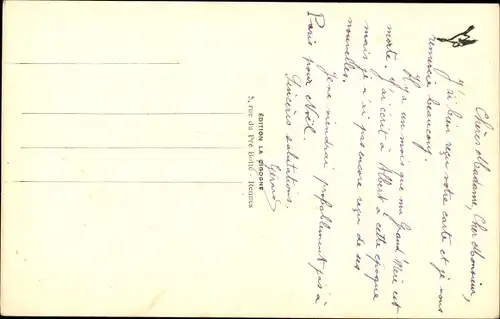 Chère Madame, Cher Monsieur,
J'ai bien reçu votre carte et je vous
remercie beaucoup.
Il y a un mois que ma Grand'Mère est
morte. J'ai écrit à Albert à cette époque
mais je n'ai pas encore reçu de ses
nouvelles.
Je ne viendrai probablement pas à
Paris pour Noël.
Sincères salutations,
Gérard
ÉDITION LA CIGOGNE
5, rue du Pré Botté - Rennes